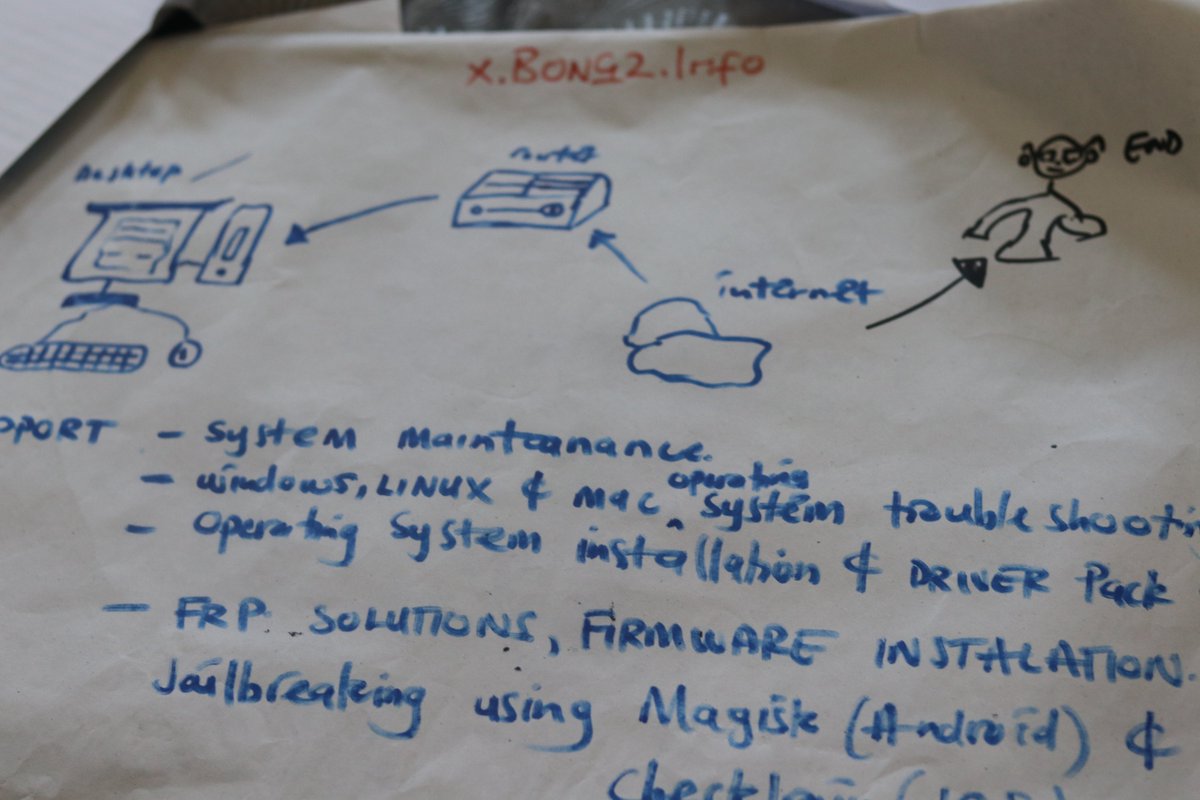 x.BONG2.Info
Desktop
router
END
internet
PPORT - System mainteanance.
- windows, LINUX & mac operating system trouble shooti
- Operating System installation & DRIVER Pack
- FRP SOLUTIONS, FIRMWARE INSTALATION.
Jailbreaking using Magisk (Android) &